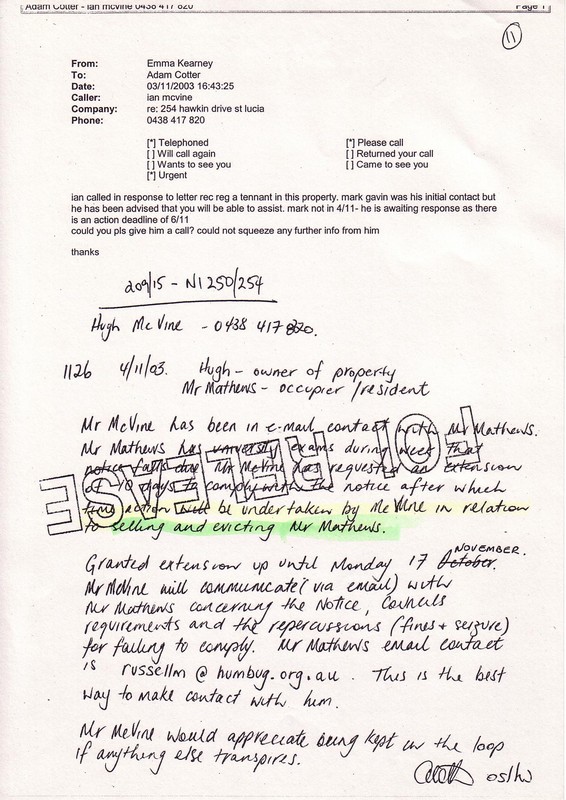 Adam Cotter - ian mcvine 0438 417 820 Page 1
11
From: Emma Kearney
To: Adam Cotter
Date: 03/11/2003 16:43:25
Caller: ian mcvine
Company: re: 254 hawkin drive st lucia
Phone: 0438 417 820
[*] Telephoned [*] Please call
[ ] Will call again [ ] Returned your call
[ ] Wants to see you [ ] Came to see you
[*] Urgent
ian called in response to letter rec reg a tennant in this property. mark gavin was his initial contact but
he has been advised that you will be able to assist. mark not in 4/11- he is awaiting response as there
is an action deadline of 6/11
could you pls give him a call? could not squeeze any further info from him
thanks
209/15 - N1250/254
Hugh McVine - 0438 417 820.
1126 4/11/03. Hugh - owner of property
Mr Mathews - occupier / resident
Mr McVine has been in e-mail contact with Mr Mathews.
Mr Mathews has university exams during week that
notice falls due. Mr McVine has requested an extension
of 10 days to comply with the notice after which
time action will be undertaken by McVine in relation
to selling and evicting Mr Mathews.
RTI RELEASE
Granted extension up until Monday 17 October. NOVEMBER.
Mr McVine will communicate (via email) with
Mr Mathews concerning the Notice, Councils
requirements and the repercussions (fines + seizure)
for failing to comply. Mr Mathews email contact
is russellm @ humbug.org.au. This is the best
way to make contact with him.
Mr McVine would appreciate being kept in the loop
if anything else transpires.